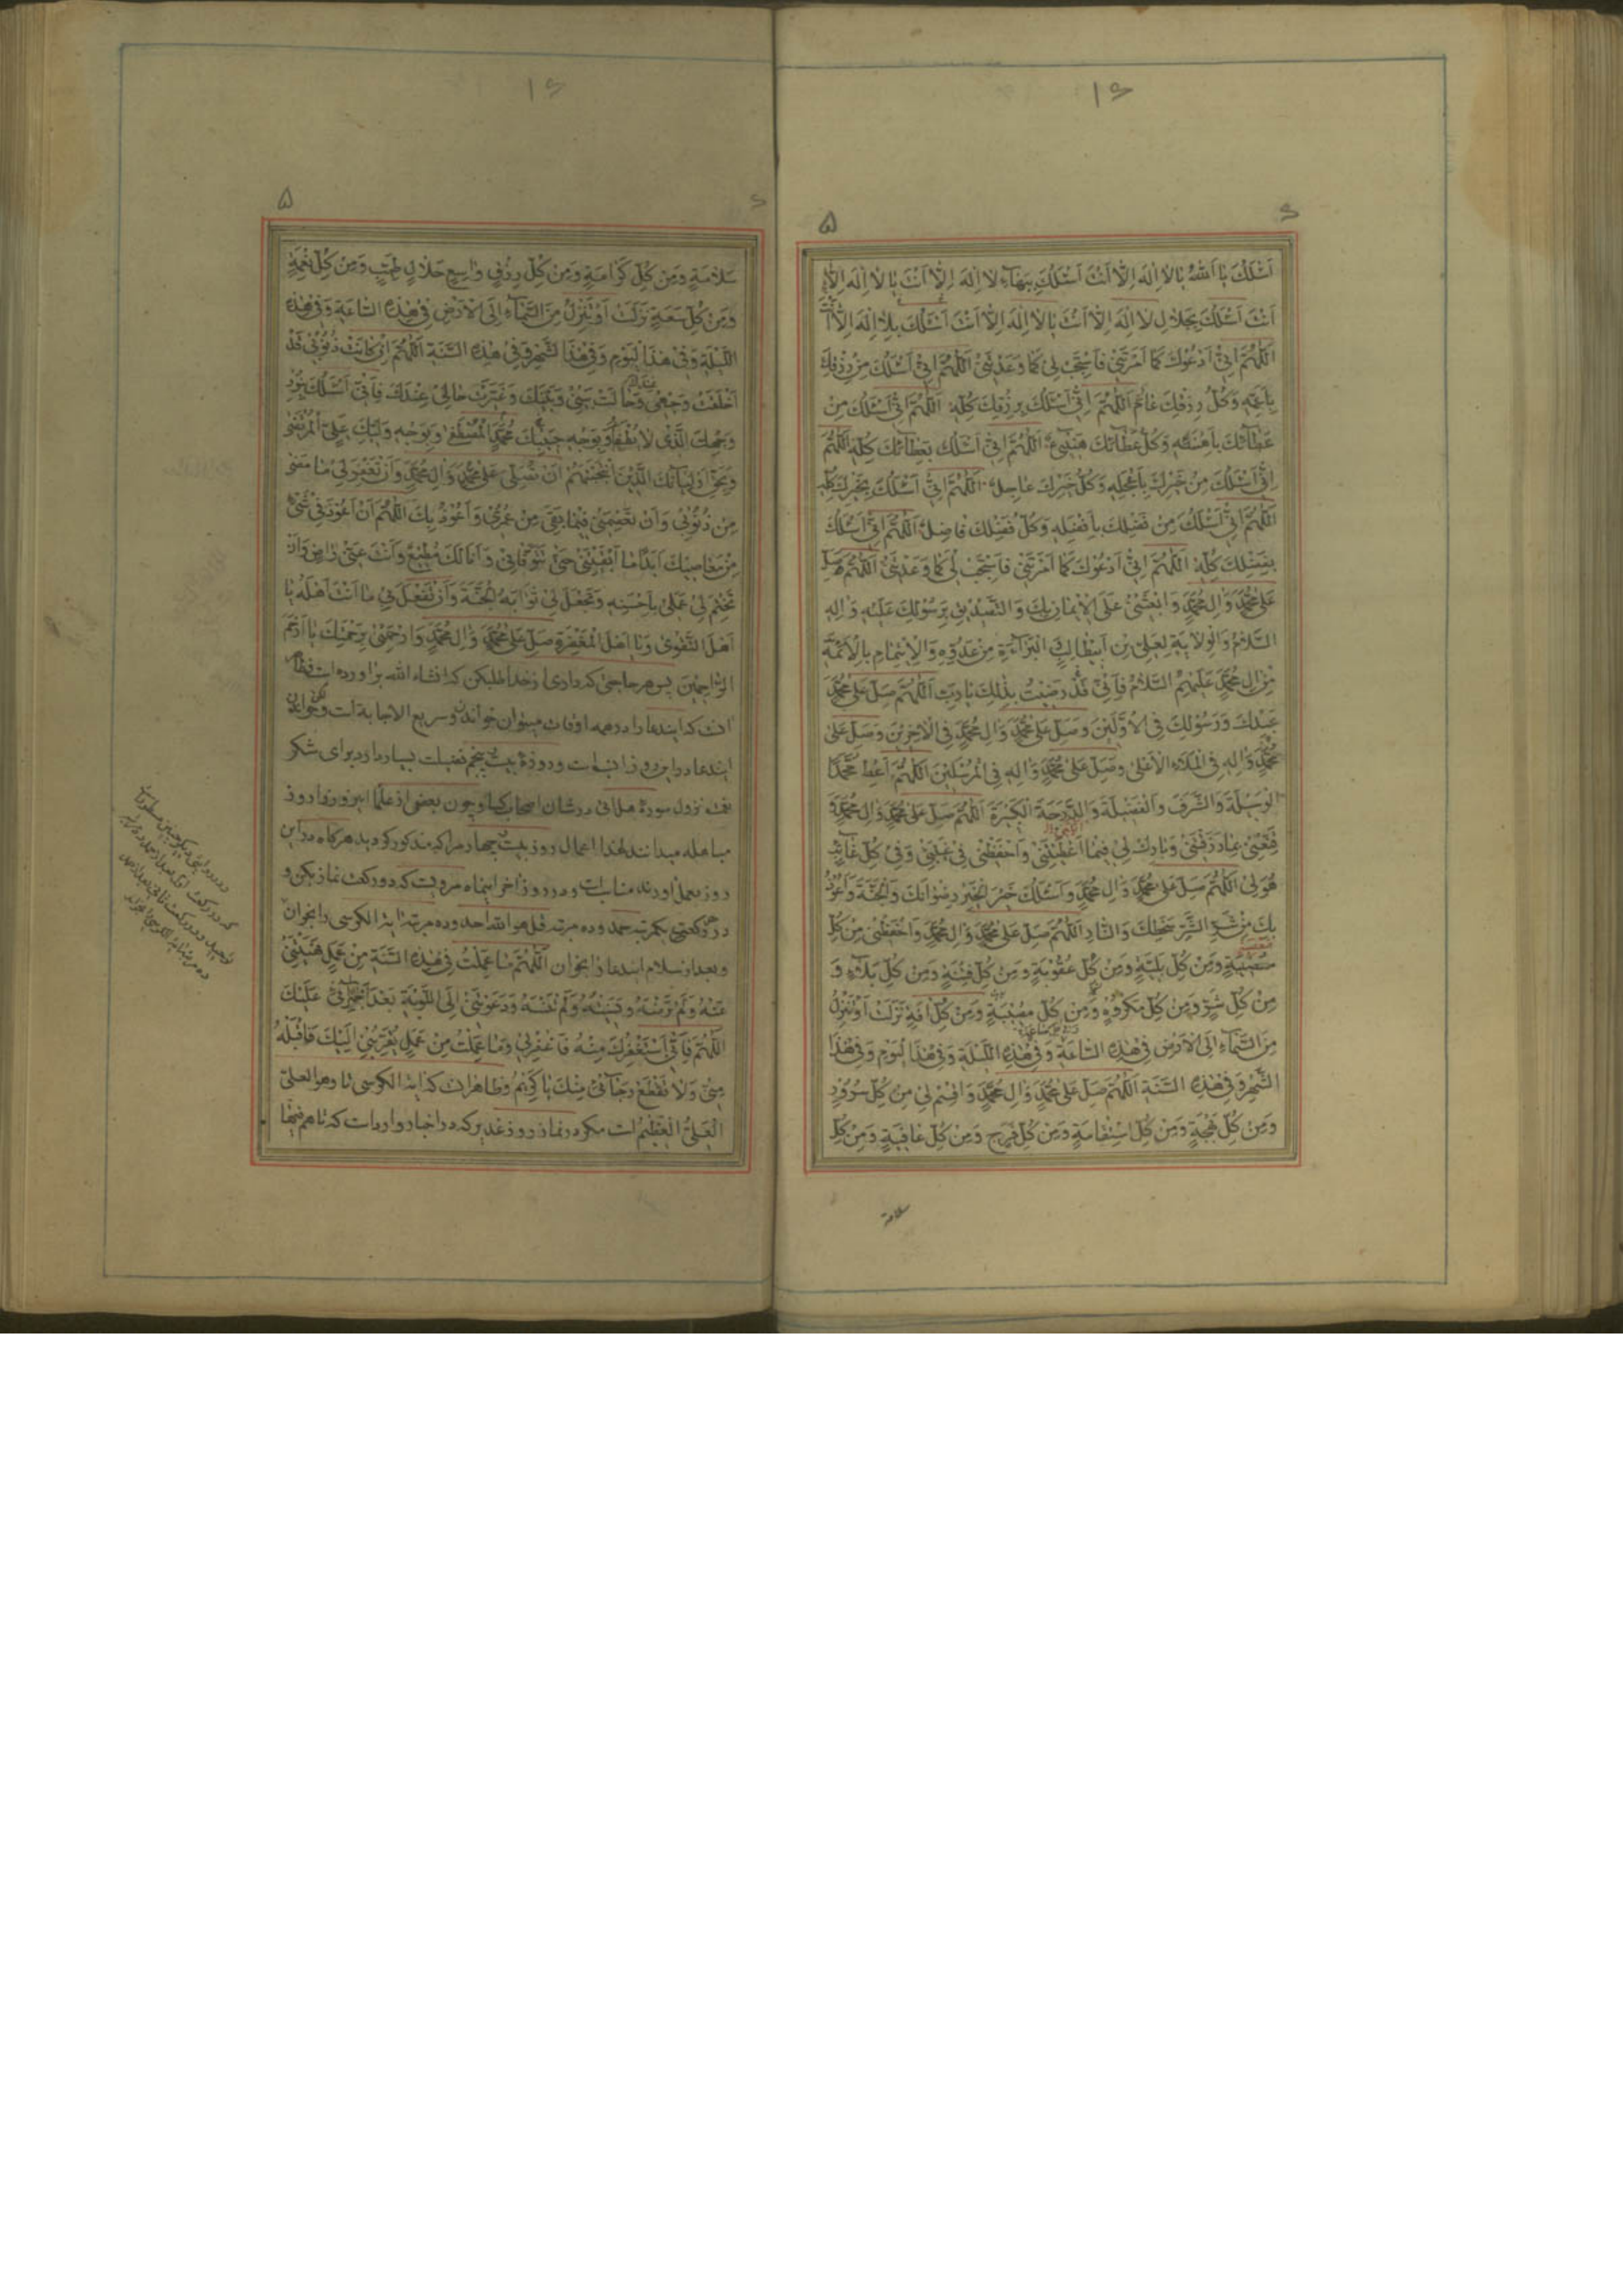 ۱۶
۶
۵
اَسْئَلُكَ يا اَللهُ يا لا اِلهَ اِلّا اَنْتَ اَسْئَلُكَ بِبَهاءِ لا اِلهَ اِلّا اَنْتَ يا لا اِلهَ اِلّا
اَنْتَ اَسْئَلُكَ بِجَلالِ لا اِلهَ اِلّا اَنْتَ يا لا اِلهَ اِلّا اَنْتَ اَسْئَلُكَ بِلا اِلهَ اِلّا اَنْتَ
اَللّهُمَّ اِنّي اَدْعُوكَ كَما اَمَرْتَني فَاسْتَجِبْ لي كَما وَعَدْتَني اَللّهُمَّ اِنّي اَسْئَلُكَ مِنْ رِزْقِكَ
بِاَعَمِّهِ وَكُلُّ رِزْقِكَ عامٌّ اَللّهُمَّ اِنّي اَسْئَلُكَ بِرِزْقِكَ كُلِّهِ اَللّهُمَّ اِنّي اَسْئَلُكَ مِنْ
عَطائِكَ بِاَهْنَئِهِ وَكُلُّ عَطائِكَ هَنيئٌ اَللّهُمَّ اِنّي اَسْئَلُكَ بِعَطائِكَ كُلِّهِ اَللّهُمَّ
اِنّي اَسْئَلُكَ مِنْ خَيْرِكَ بِاَعْجَلِهِ وَكُلُّ خَيْرِكَ عاجِلٌ اَللّهُمَّ اِنّي اَسْئَلُكَ بِخَيْرِكَ كُلِّهِ
اَللّهُمَّ اِنّي اَسْئَلُكَ مِنْ فَضْلِكَ بِاَفْضَلِهِ وَكُلُّ فَضْلِكَ فاضِلٌ اَللّهُمَّ اِنّي اَسْئَلُكَ
بِفَضْلِكَ كُلِّهِ اَللّهُمَّ اِنّي اَدْعُوكَ كَما اَمَرْتَني فَاسْتَجِبْ لي كَما وَعَدْتَني اَللّهُمَّ صَلِّ
عَلى مُحَمَّدٍ وَالِ مُحَمَّدٍ وَابْعَثْني عَلَى الْايمانِ بِكَ وَالتَّصْديقِ بِرَسُولِكَ عَلَيْهِ وَالِهِ
السَّلامُ وَالْوِلايَةِ لِعَلِيِّ بْنِ اَبيطالِبٍ الْبَرآءَةِ مِنْ عَدُوِّهِ وَالْاِيتِمامِ بِالْاَئِمَّةِ
مِنْ الِ مُحَمَّدٍ عَلَيْهِمُ السَّلامُ فَاِنّي قَدْ رَضيتُ بِذلِكَ يا رَبِّ اَللّهُمَّ صَلِّ عَلى مُحَمَّدٍ
عَبْدِكَ وَرَسُولِكَ فِي الْاَوَّلينَ وَصَلِّ عَلى مُحَمَّدٍ وَالِ مُحَمَّدٍ فِي الْاخِرينَ وَصَلِّ عَلى
مُحَمَّدٍ وَالِهِ فِي الْمَلَاءِ الْاَعْلى وَصَلِّ عَلى مُحَمَّدٍ وَالِهِ فِي الْمُرْسَلينَ اَللّهُمَّ اَعْطِ مُحَمَّدًا
الْوَسيلَةَ وَالشَّرَفَ وَالْفَضيلَةَ وَالدَّرَجَةَ الْكَبيرَةَ اَللّهُمَّ صَلِّ عَلى مُحَمَّدٍ وَالِ مُحَمَّدٍ وَ
قَنِّعْني بِما رَزَقْتَني وَبارِكْ لي فيما اَعْطَيْتَني وَاحْفَظْني في غَيْبَتي وَفي كُلِّ غائِبٍ
هُوَ لي اَللّهُمَّ صَلِّ عَلى مُحَمَّدٍ وَالِ مُحَمَّدٍ وَاَسْئَلُكَ خَيْرَ الْخَيْرِ رِضْوانَكَ وَالْجَنَّةَ وَاَعُوذُ
بِكَ مِنْ شَرِّ الشَّرِّ سَخَطِكَ وَالنّارِ اَللّهُمَّ صَلِّ عَلى مُحَمَّدٍ وَالِ مُحَمَّدٍ وَاحْفَظْني مِنْ كُلِّ
مُصيبَةٍ وَمِنْ كُلِّ بَلِيَّةٍ وَمِنْ كُلِّ عُقُوبَةٍ وَمِنْ كُلِّ فِتْنَةٍ وَمِنْ كُلِّ بَلاءٍ وَ
مِنْ كُلِّ شَرٍّ وَمِنْ كُلِّ مَكْرُوهٍ وَمِنْ كُلِّ مُصيبَةٍ وَمِنْ كُلِّ افَةٍ نَزَلَتْ اَوْ تَنْزِلُ
مِنَ السَّماءِ اِلَى الْاَرْضِ في هذِهِ السّاعَةِ وَفي هذِهِ اللَّيْلَةِ وَفي هذَا الْيَوْمِ وَفي هذَا
الشَّهْرِ وَفي هذِهِ السَّنَةِ اَللّهُمَّ صَلِّ عَلى مُحَمَّدٍ وَالِ مُحَمَّدٍ وَاقْسِمْ لي مِنْ كُلِّ سُرُورٍ
وَمِنْ كُلِّ بَهْجَةٍ وَمِنْ كُلِّ اسْتِقامَةٍ وَمِنْ كُلِّ فَرَجٍ وَمِنْ كُلِّ عافِيَةٍ وَمِنْ كُلِّ
سلامة
۱۶
۶
۵
سَلامَةٍ وَمِنْ كُلِّ كَرامَةٍ وَمِنْ كُلِّ رِزْقٍ واسِعٍ حَلالٍ طَيِّبٍ وَمِنْ كُلِّ نِعْمَةٍ
وَمِنْ كُلِّ سَعَةٍ نَزَلَتْ اَوْ تَنْزِلُ مِنَ السَّماءِ اِلَى الْاَرْضِ في هذِهِ السّاعَةِ وَفي هذِهِ
اللَّيْلَةِ وَفي هذَا الْيَوْمِ وَفي هذَا الشَّهْرِ وَفي هذِهِ السَّنَةِ اَللّهُمَّ اِنْ كانَتْ ذُنُوبي قَدْ
اَخْلَقَتْ وَجْهي وَحالَتْ بَيْني وَبَيْنَكَ وَغَيَّرَتْ حالي عِنْدَكَ فَاِنّي اَسْئَلُكَ بِنُورِ
وَجْهِكَ الَّذي لا يُطْفَأُ وَبِوَجْهِ حَبيبِكَ مُحَمَّدٍ الْمُصْطَفى وَبِوَجْهِ وَلِيِّكَ عَلِيٍّ الْمُرْتَضى
وَبِحَقِّ اَوْلِيائِكَ الَّذينَ انْتَجَبْتَهُمْ اَنْ تُصَلِّيَ عَلى مُحَمَّدٍ وَالِ مُحَمَّدٍ وَاَنْ تَغْفِرَ لي ما مَضى
مِنْ ذُنُوبي وَاَنْ تَعْصِمَني فيما بَقِيَ مِنْ عُمُري وَاَعُوذُ بِكَ اَللّهُمَّ اَنْ اَعُودَ في شَيْءٍ
مِنْ مَعاصيكَ اَبَدًا ما اَبْقَيْتَني حَتّى تَتَوَفّاني وَاَنَا لَكَ مُطيعٌ وَاَنْتَ عَنّي راضٍ وَاَنْ
تَخْتِمَ لي عَمَلي بِاَحْسَنِهِ وَتَجْعَلَ لي ثَوابَهُ الْجَنَّةَ وَاَنْ تَفْعَلَ بي ما اَنْتَ اَهْلُهُ يا
اَهْلَ التَّقْوى وَيا اَهْلَ الْمَغْفِرَةِ صَلِّ عَلى مُحَمَّدٍ وَالِ مُحَمَّدٍ وَارْحَمْني بِرَحْمَتِكَ يا اَرْحَمَ
الرّاحِمينَ پس هر حاجتی که داری از خدا طلب کن که انشاء الله براورده است
انست که ایندعا را در همه اوقات میتوان خواند و سریع الاجابة است
ایندعا در این روز و روزهٔ بیست پنجم فضیلت بسیار دارد برای شکر
نعمت نزول سورهٔ هل اتی در شان اصحاب کسا و چون بعضی از علما این روز را روز
مباهله میدانند لهذا اعمال روز بیست چهارم را که مذکور گردید هرگاه در این
روز بعمل اورند مناسبست و در روز اخر اینماه مرویست که دو رکعت نماز بکن و
در هر رکعتی یکمرتبه حمد و ده مرتبه قل هو الله احد و ده مرتبه ایة الکرسی را بخوان
و بعد از سلام ایندعا را بخوان اَللّهُمَّ ما عَمِلْتُ في هذِهِ السَّنَةِ مِنْ عَمَلٍ نَهَيْتَني
عَنْهُ وَلَمْ تَرْضَهُ وَنَسيتُهُ وَلَمْ تَنْسَهُ وَدَعَوْتَني اِلَى التَّوْبَةِ بَعْدَ اجْتِرائي عَلَيْكَ
اَللّهُمَّ فَاِنّي اَسْتَغْفِرُكَ مِنْهُ فَاغْفِرْ لي وَما عَمِلْتُ مِنْ عَمَلٍ يُقَرِّبُني اِلَيْكَ فَاقْبَلْهُ
مِنّي وَلا تَقْطَعْ رَجائي مِنْكَ يا كَريمُ و ظاهر انست که ایة الکرسی تا وهو العلیّ
الْعَلِيُّ الْعَظيمُ است مگر در نماز روز غدیر که در اخبار وارد است که تا هم فیها